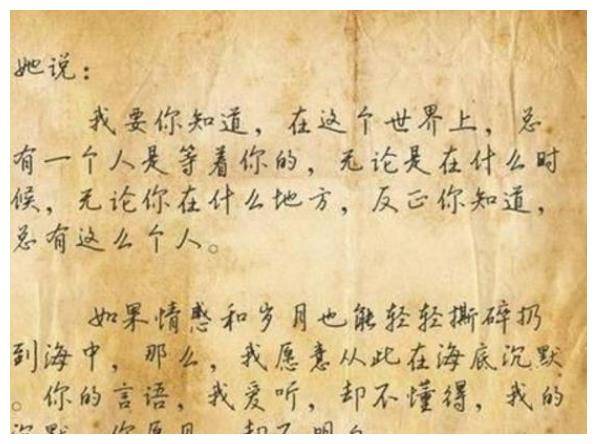 她说：
我要你知道，在这个世界上，总
有一个人是等着你的，无论是在什么时
候，无论你在什么地方，反正你知道，
总有这么个人。
如果情感和岁月也能轻轻撕碎扔
到海中，那么，我愿意从此在海底沉默
。你的言语，我爱听，却不懂得，我的